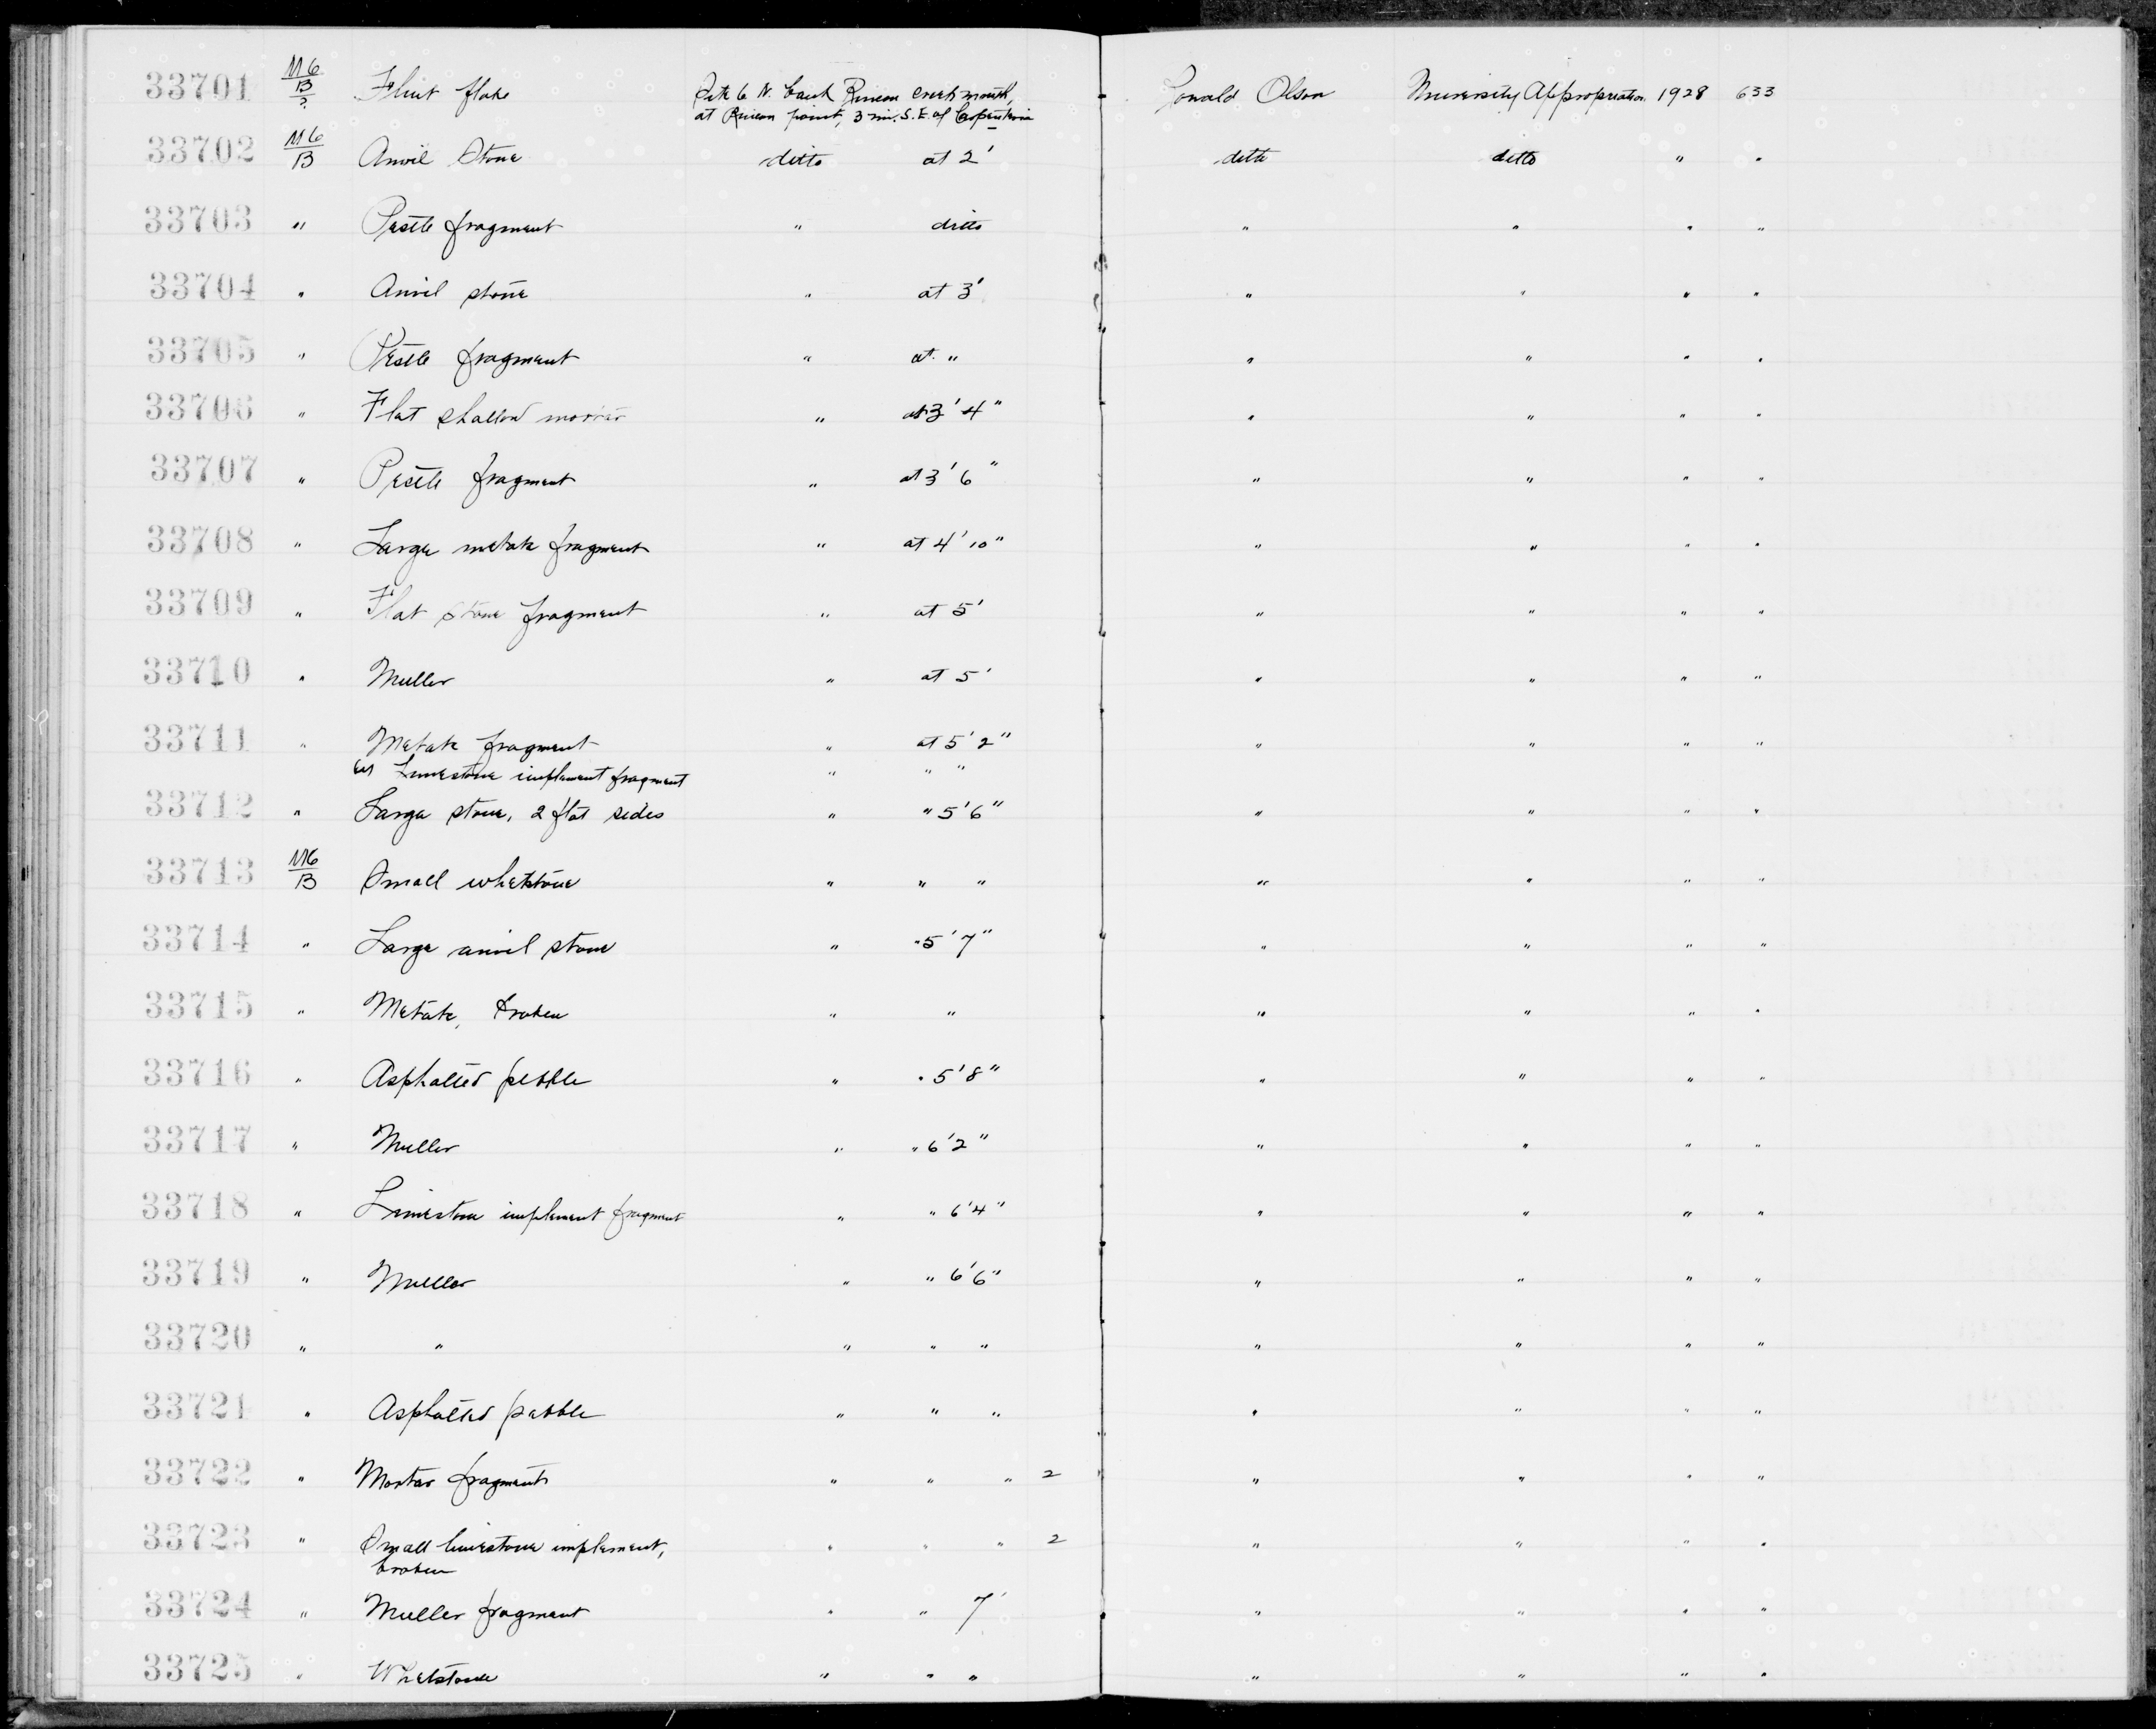 33701 M6/B/? Flint flake Site 6 N. bank Rincon creek mouth, Ronald Olson University Appropriation 1928 633
at Rincon point, 3 mi. S.E. of Carpinteria
33702 M6/B Anvil Stone ditto at 2' ditto ditto " "
33703 " Pestle fragment " ditto " " " "
33704 " Anvil stone " at 3' " " " "
33705 " Pestle fragment " at " " " " "
33706 " Flat shallow mortar " at 3' 4" " " " "
33707 " Pestle fragment " at 3' 6" " " " "
33708 " Large metate fragment " at 4' 10" " " " "
33709 " Flat stone fragment " at 5' " " " "
33710 " Muller " at 5' " " " "
33711 " Metate fragment " at 5' 2" " " " "
Limestone implement fragment " " "
33712 " Large stone, 2 flat sides " " 5' 6" " " " "
33713 M6/B Small whetstone " " " " " " "
33714 " Large anvil stone " " 5' 7" " " " "
33715 " Metate, broken " " " " " "
33716 " Asphalted pebble " " 5' 8" " " " "
33717 " Muller " " 6' 2" " " " "
33718 " Limestone implement fragment " " 6' 4" " " " "
33719 " Muller " " 6' 6" " " " "
33720 " " " " " " " " "
33721 " Asphalted pebble " " " " " " "
33722 " Mortar fragments " " " 2 " " " "
33723 " Small limestone implement, " " " 2 " " " "
broken
33724 " Muller fragment " " 7' " " " "
33725 " Whetstone " " " " " " "